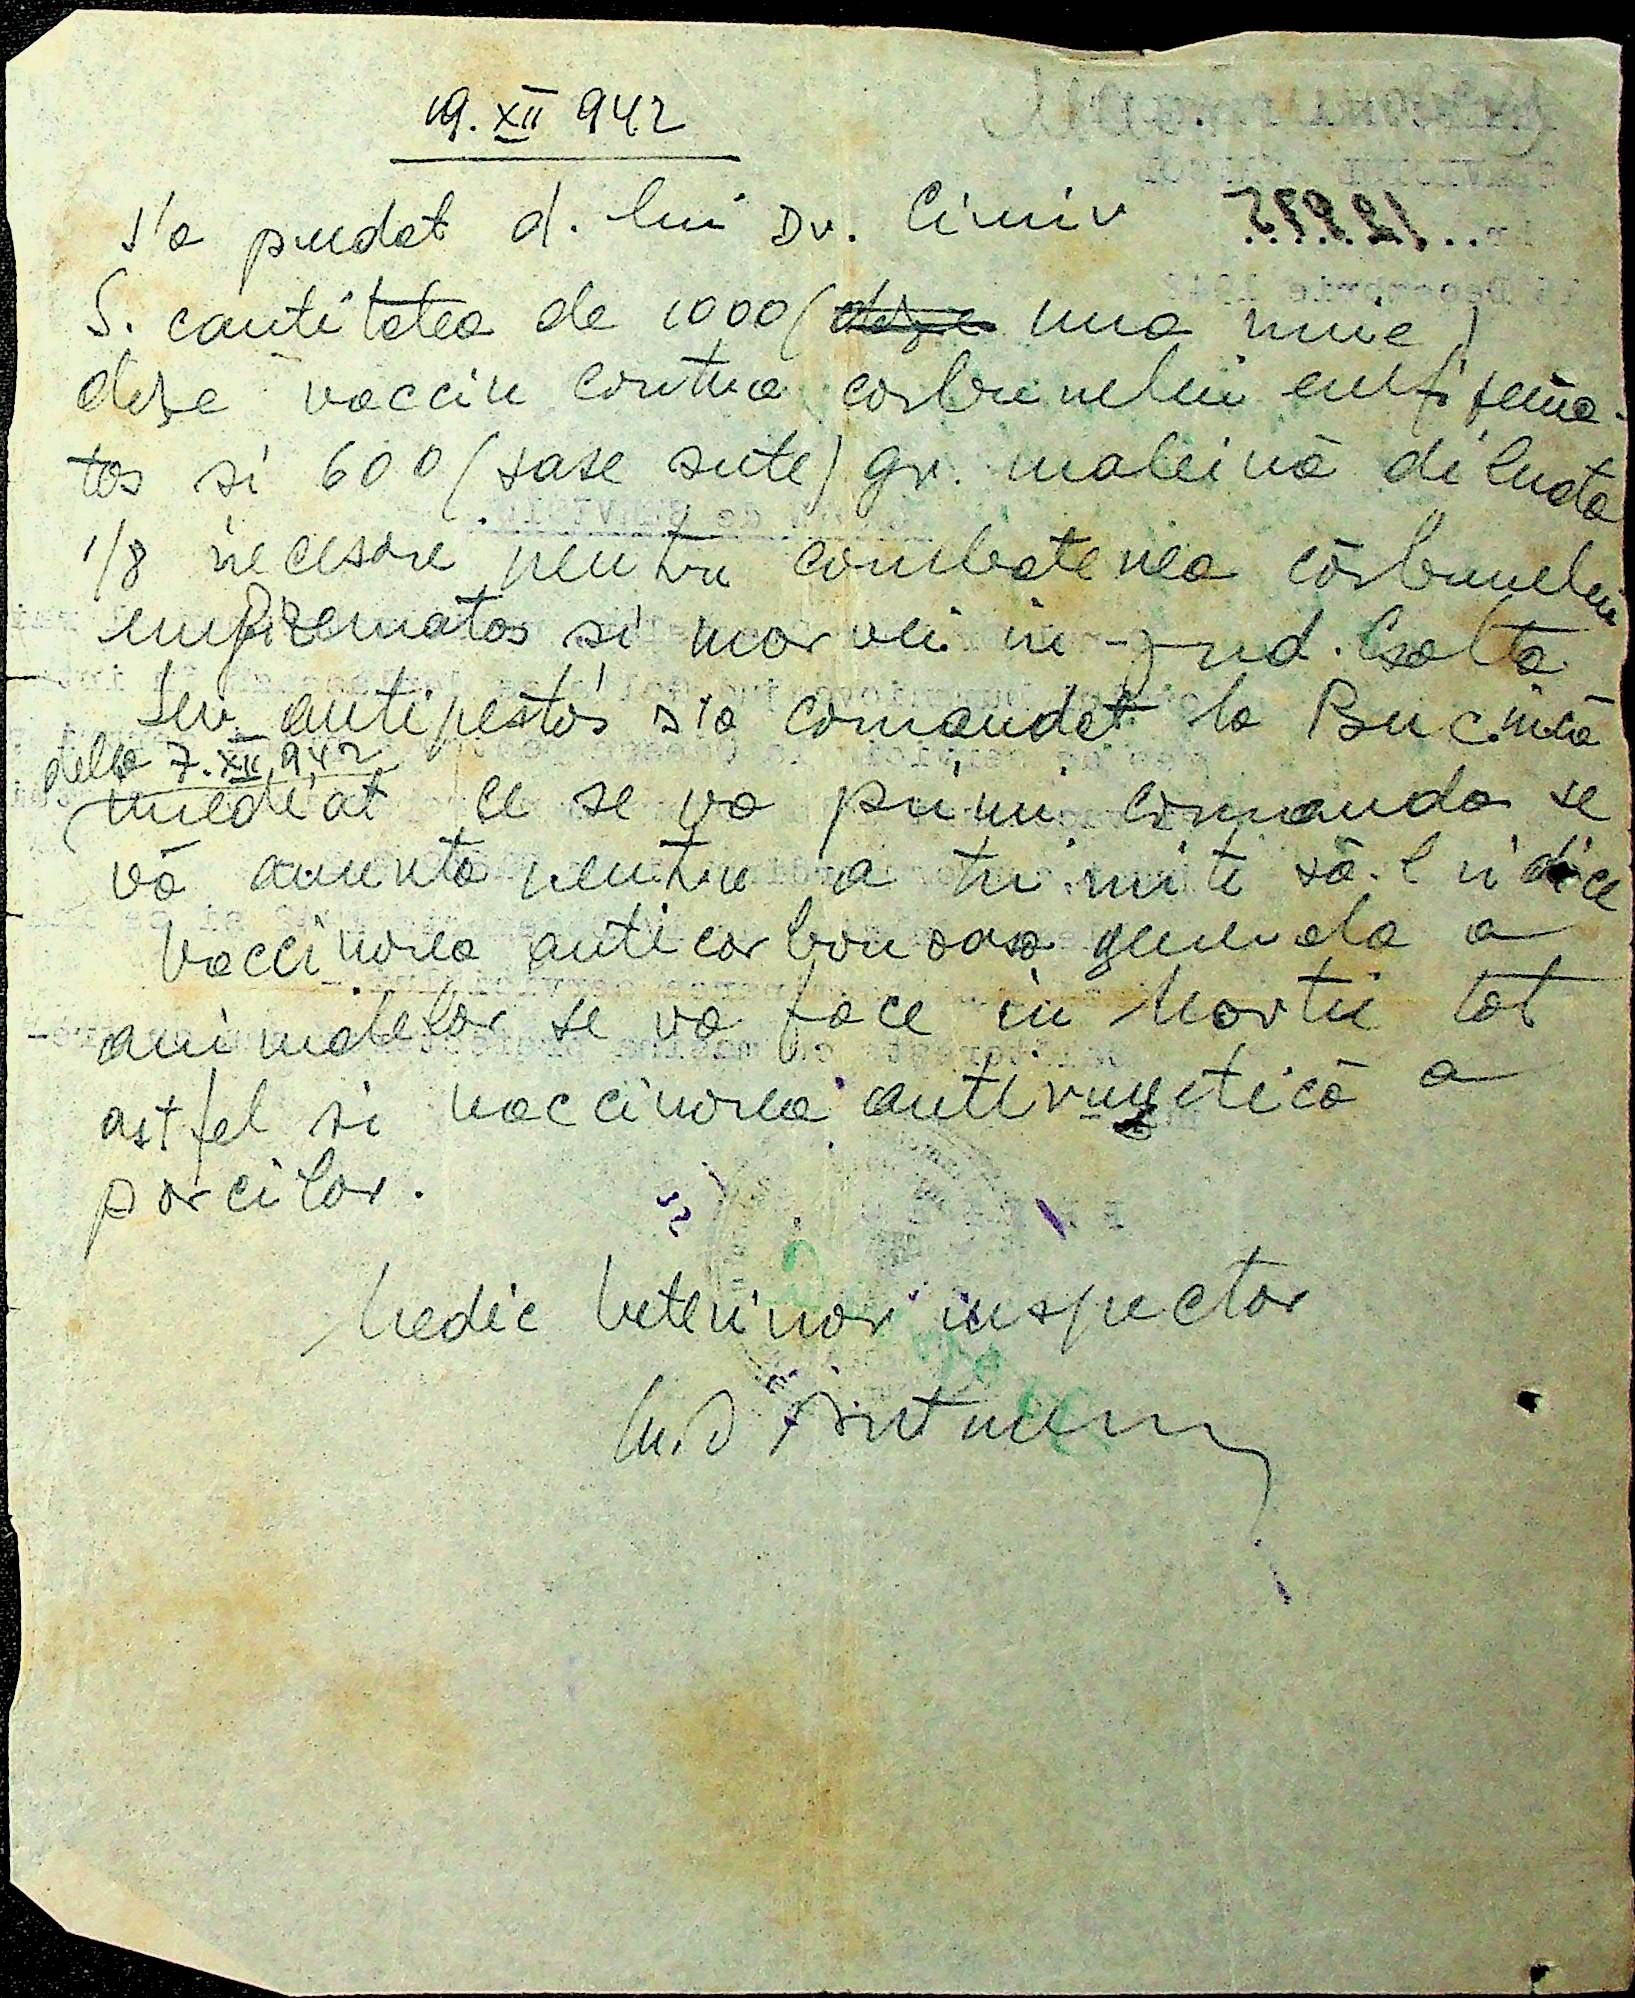 19. XII 942
S'a predat d. lui Dr. Cimir
S. cantitatea de 1000 ( una mie )
doze vaccin contra carbunelui emfizema-
tos si 600 (sase sute) gr. maleină diluata
1/8 necesare pentru combaterea cărbunelui
emfizematos si morvei in jud. Balta
Ser. antipestos s'a comandat la Buc. încă
dela 7.XII 942
imediat ce se va primi comanda se
vă anunta pentru a trimite să-l ridice
Vaccinarea anticarbonoasa generala a
animalelor se va face in Martie tot
astfel si vaccinarea antirugetică a
porcilor.
Medic Veterinar inspector